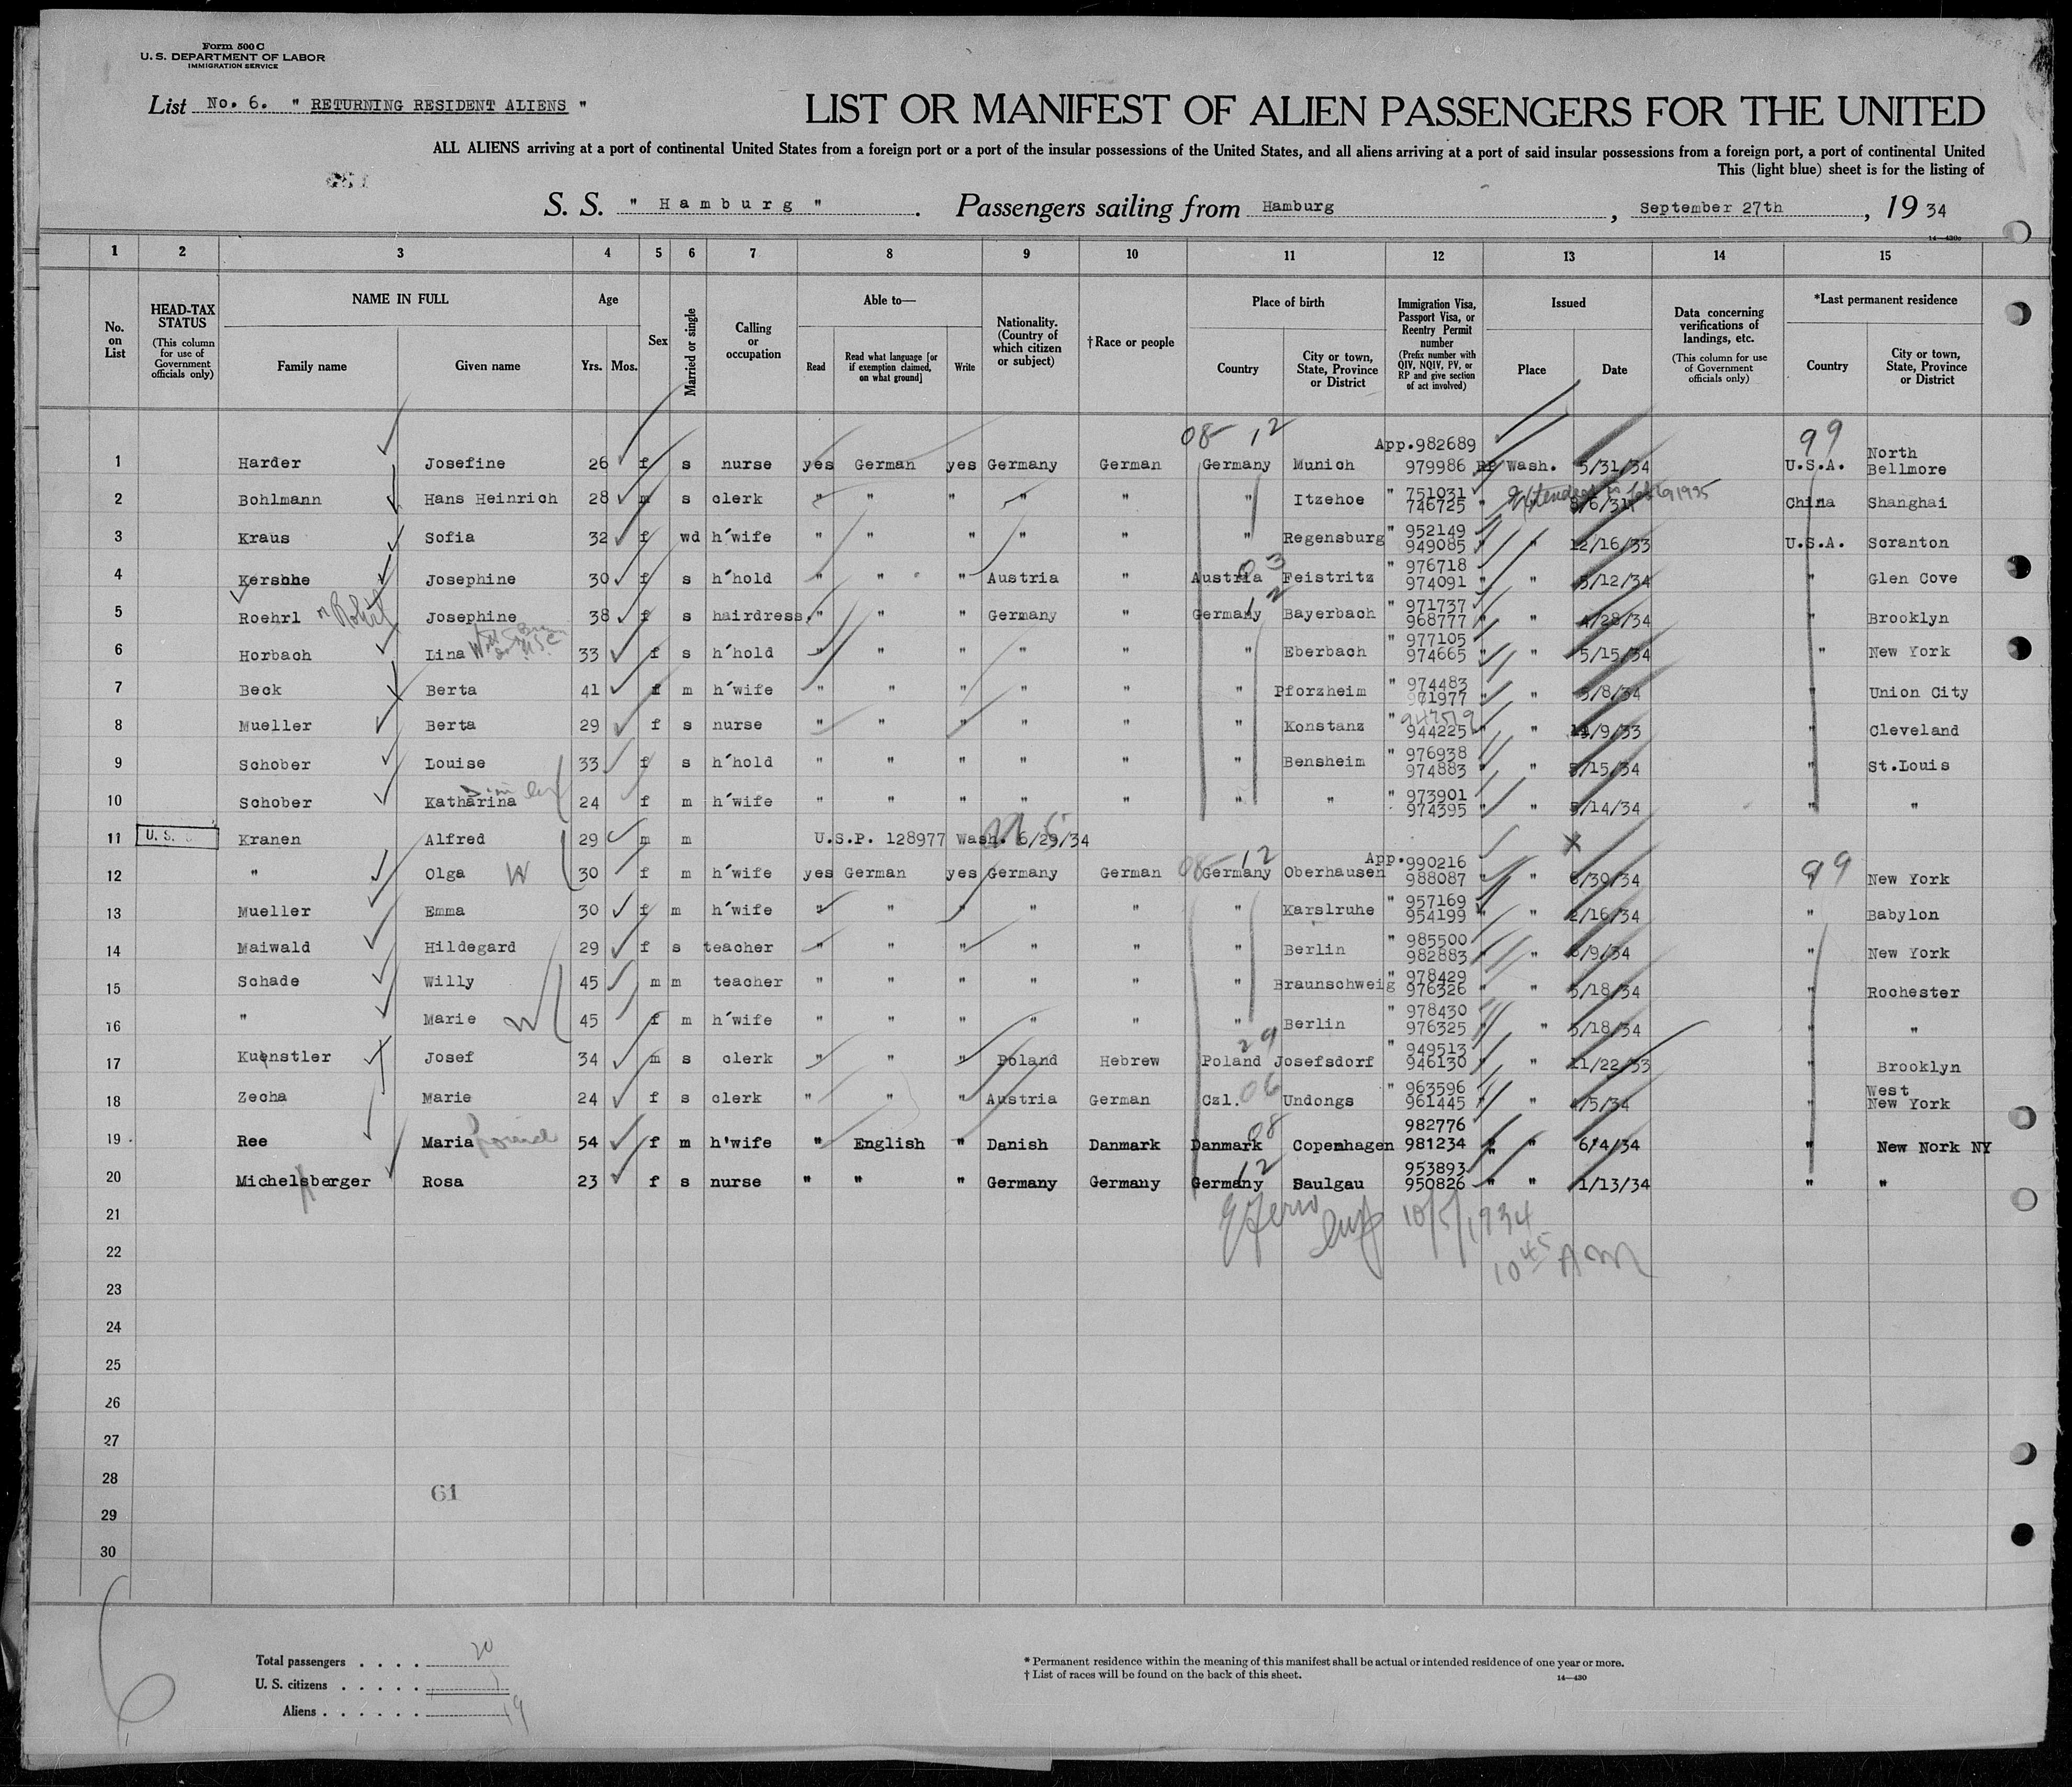 Form 500 C
U. S. DEPARTMENT OF LABOR
IMMIGRATION SERVICE
List No. 6. " RETURNING RESIDENT ALIENS "
LIST OR MANIFEST OF ALIEN PASSENGERS FOR THE UNITED
ALL ALIENS arriving at a port of continental United States from a foreign port or a port of the insular possessions of the United States, and all aliens arriving at a port of said insular possessions from a foreign port, a port of continental United
This (light blue) sheet is for the listing of
S. S. " Hamburg ". Passengers sailing from Hamburg, September 27th, 1934
14—430c
1 2 3 4 5 6 7 8 9 10 11 12 13 14 15
No. on List
HEAD-TAX STATUS (This column for use of Government officials only)
NAME IN FULL
Family name Given name
Age
Yrs. Mos.
Sex
Married or single
Calling or occupation
Able to—
Read Read what language [or if exemption claimed, on what ground] Write
Nationality. (Country of which citizen or subject)
†Race or people
Place of birth
Country City or town, State, Province or District
Immigration Visa, Passport Visa, or Reentry Permit number (Prefix number with QIV, NQIV, PV, or RP and give section of act involved)
Issued
Place Date
Data concerning verifications of landings, etc. (This column for use of Government officials only)
*Last permanent residence
Country City or town, State, Province or District
08 12 99
1 Harder Josefine 26 f s nurse yes German yes Germany German Germany Munich App.982689 979986 RP Wash. 5/31/34 U.S.A. North Bellmore
2 Bohlmann Hans Heinrich 28 m s clerk " " " " " " Itzehoe " 751031 746725 " " 8/6/31 Extended to Feb 6 1935 China Shanghai
3 Kraus Sofia 32 f wd h'wife " " " " " " Regensburg " 952149 949085 " " 12/16/33 U.S.A. Scranton
03
4 Kershhe Josephine 30 f s h'hold " " " Austria " Austria Feistritz " 976718 974091 " " 5/12/34 " Glen Cove
12
5 Roehrl or Rohrl Josephine 38 f s hairdress. " " " Germany " Germany Bayerbach " 971737 968777 " " 4/28/34 " Brooklyn
6 Horbach Lina 33 f s h'hold " " " " " " Eberbach " 977105 974665 " " 5/15/34 " New York
7 Beck Berta 41 f m h'wife " " " " " " Pforzheim " 974483 971977 " " 5/8/34 " Union City
8 Mueller Berta 29 f s nurse " " " " " " Konstanz " 947519 944225 " " 11/9/33 " Cleveland
9 Schober Louise 33 f s h'hold " " " " " " Bensheim " 976938 974883 " " 5/15/34 " St.Louis
10 Schober Katharina 24 f m h'wife " " " " " " " " 973901 974395 " " 5/14/34 " "
11 U. S. Kranen Alfred 29 m m U.S.P. 128977 Wash. 6/29/34 X
08 12 99
12 " Olga W 30 f m h'wife yes German yes Germany German Germany Oberhausen App. 990216 988087 " " 6/30/34 " New York
13 Mueller Emma 30 f m h'wife " " " " " " Karslruhe " 957169 954199 " " 2/16/34 " Babylon
14 Maiwald Hildegard 29 f s teacher " " " " " " Berlin " 985500 982883 " " 6/9/34 " New York
15 Schade Willy 45 m m teacher " " " " " " Braunschweig " 978429 976326 " " 5/18/34 " Rochester
16 " Marie W 45 f m h'wife " " " " " " Berlin " 978430 976325 " " 5/18/34 " "
29
17 Kuenstler Josef 34 m s clerk " " " Poland Hebrew Poland Josefsdorf " 949513 946130 " " 11/22/33 " Brooklyn
06
18 Zecha Marie 24 f s clerk " " " Austria German Czl. Undongs " 963596 961445 " " 4/5/34 " West New York
08
19 Ree Maria 54 f m h'wife " English " Danish Danmark Danmark Copenhagen 982776 981234 " " 6/4/34 " New Nork NY
12
20 Michelsberger Rosa 23 f s nurse " " " Germany Germany Germany Saulgau 953893 950826 " " 1/13/34 " "
10/5/1934
10 45 AM
21
22
23
24
25
26
27
28
61
29
30
6
Total passengers . . . . 20
U. S. citizens . . . . . 1
Aliens . . . . . . 19
* Permanent residence within the meaning of this manifest shall be actual or intended residence of one year or more.
† List of races will be found on the back of this sheet.
14—430